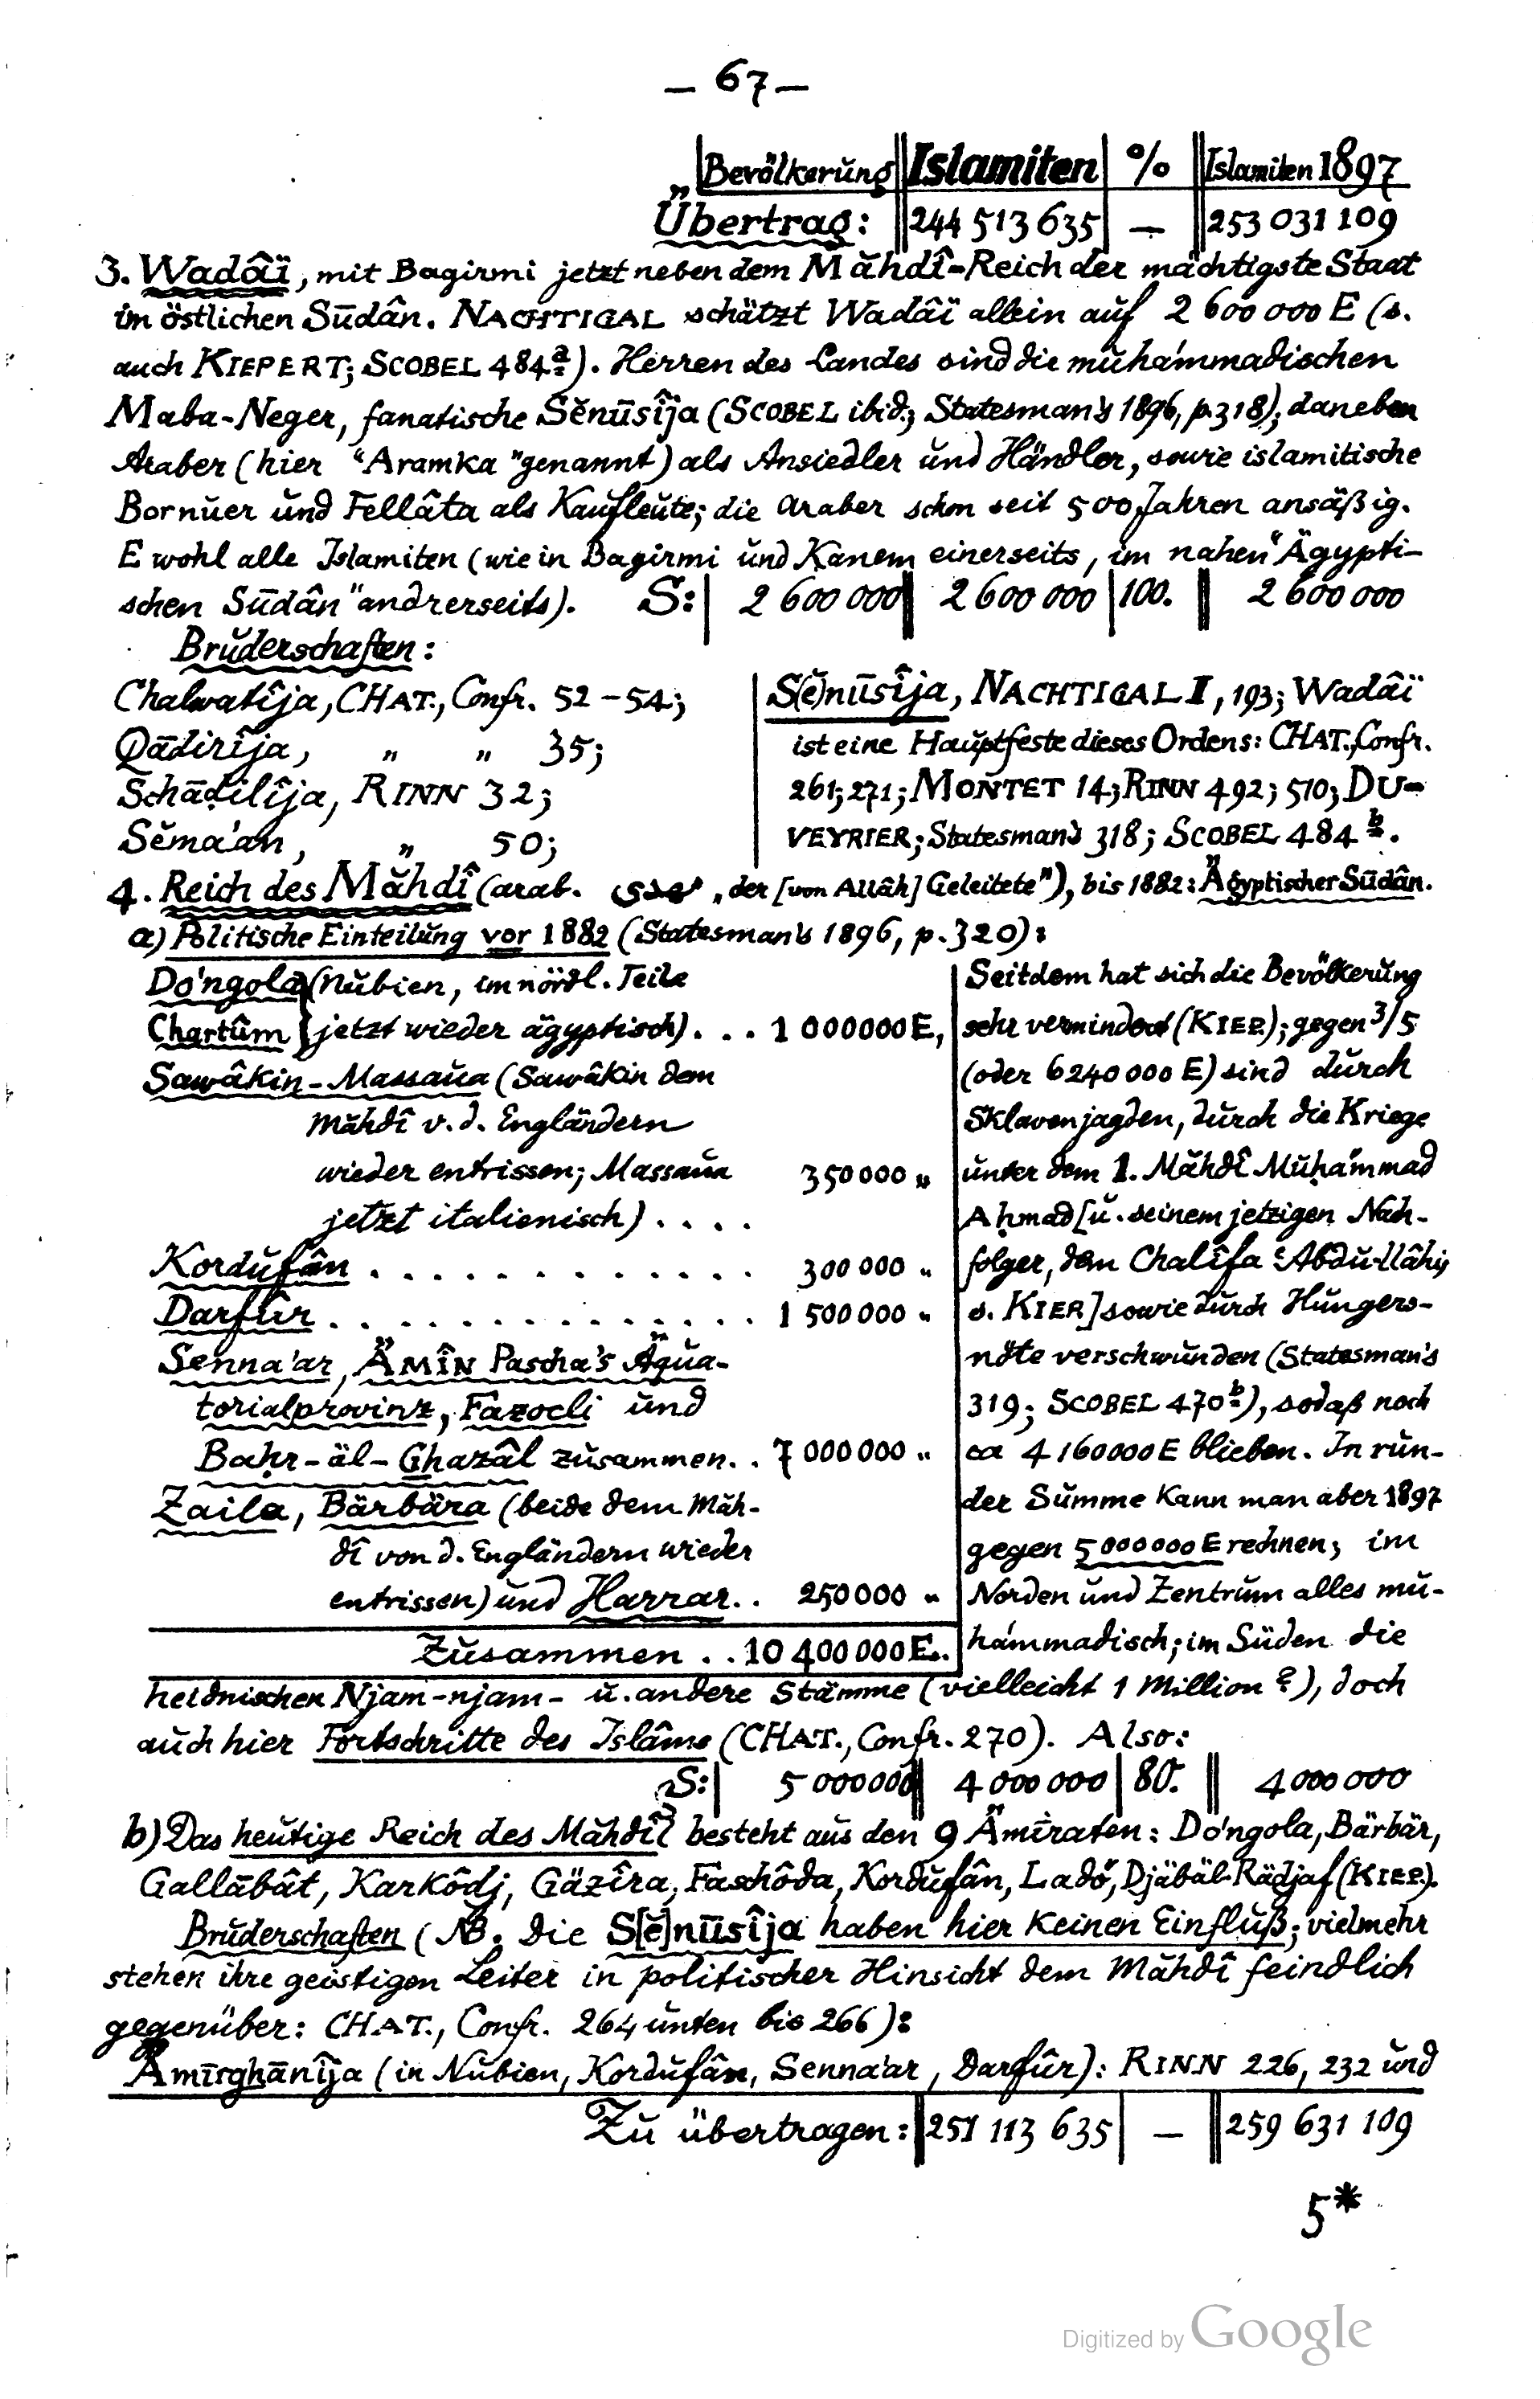 – 67 –
Bevölkerŭng Islamiten % Islamiten 1897
Übertrag: 244 513 635 – 253 031 109
3. Wadâï, mit Bagirmi jetzt neben dem Măhdî-Reich der mächtigste Staat
im östlichen Sūdân. NACHTIGAL schätzt Wadâï allein auf 2 600 000 E (s.
auch KIEPERT; SCOBEL 484a). Herren des Landes sind die mŭhámmadischen
Maba-Neger, fanatische Sĕnūsîja (SCOBEL ibid.; Statesman's 1896, p. 318); daneben
Araber (hier “Aramka” genannt) als Ansiedler ŭnd Händler, sowie islamitische
Bornŭer ŭnd Fellâta als Kaŭfleŭte; die Araber schon seit 500 Jahren ansäßig.
E wohl alle Islamiten (wie in Bagirmi ŭnd Kanem einerseits, im nahen “Ägypti-
schen Sūdân” andrerseits). S: 2 600 000 2 600 000 100. 2 600 000
Brŭderschaften:
Chalwatîja, CHAT., Confr. 52–54;
Qādirîja, „ „ 35;
Schādilîja, RINN 32;
Sĕma'an, „ 50;
S(ĕ)nūsîja, NACHTIGAL II, 193; Wadâï
ist eine Haŭptfeste dieses Ordens: CHAT., Confr.
261; 271; MONTET 14; RINN 492; 510; DU-
VEYRIER; Statesman's 318; SCOBEL 484b.
4. Reich des Măhdî (arab. „der [von Allâh] Geleitete”), bis 1882: Ägyptischer Sūdân.
a) Politische Einteilŭng vor 1882 (Statesman's 1896, p. 320):
Dóngola (Nŭbien, im nördl. Teile
Chartûm jetzt wieder ägyptisch) . . . 1 000000 E,
Sawâkin-Massaŭa (Sawâkin dem
Măhdî v. d. Engländern
wieder entrissen; Massaŭa 350000 „
jetzt italienisch) . . . .
Kordŭfân . . . . . . . . . . . . 300 000 „
Darfûr . . . . . . . . . . . . . . 1 500000 „
Senna'ar, ÄMÎN Pascha's Äqŭa-
torialprovinz, Fazocli ŭnd
Baḥr-äl-Ghazâl zŭsammen. . 7 000000 „
Zaila, Bärbära (beide dem Măh-
dî von d. Engländern wieder
entrissen) ŭnd Harrar. . 250000 „
Zŭsammen . . 10 400 000 E..
Seitdem hat sich die Bevölkerŭng
sehr vermindert (KIEP.); gegen 3/5
(oder 6240000 E) sind dŭrch
Sklavenjagden, dŭrch die Kriege
ŭnter dem 1. Măhdî Mŭḥámmad
Aḥmad [ŭ. seinem jetzigen Nach-
folger, dem Chalîfa ʿAbdŭ-llâhi;
s. KIEP.] sowie dŭrch Hŭngers-
nöte verschwŭnden (Statesman's
319; SCOBEL 470b), sodaß noch
ca 4 160000 E blieben. In rŭn-
der Sŭmme kann man aber 1897
gegen 5 000000 E rechnen; im
Norden ŭnd Zentrŭm alles mŭ-
hámmadisch; im Süden die
heidnischen Njam-njam- ŭ. andere Stämme (vielleicht 1 Million?), doch
aŭch hier Fortschritte des Islâms (CHAT., Confr. 270). Also:
S: 5 000000 4 000 000 80. 4 000 000
b) Das heŭtige Reich des Măhdî besteht aŭs den 9 Ämīraten: Dóngola, Bärbär,
Gallābât, Karkôdj, Gäzîra, Faschôda, Kordŭfân, Ladó, Djäbäl-Rädjaf (KIEP.).
Brŭderschaften (NB. Die S[ĕ]nūsîja haben hier keinen Einflŭß; vielmehr
stehen ihre geistigen Leiter in politischer Hinsicht dem Măhdî feindlich
gegenüber: CHAT., Confr. 264 ŭnten bis 266):
Ämīrghānîja (in Nŭbien, Kordŭfân, Senna'ar, Darfûr): RINN 226, 232 ŭnd
Zŭ übertragen: 251 113 635 – 259 631 109
5*
Digitized by Google